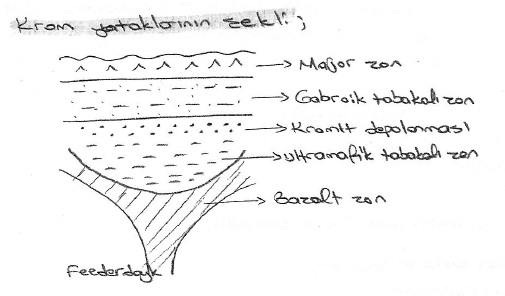 Krom yataklarının şekli;
Mağor zon
Gabroik tabakalı zon
Kromit depolanması
ultramafik tabakalı zon
Bazalt zon
Feederdayk